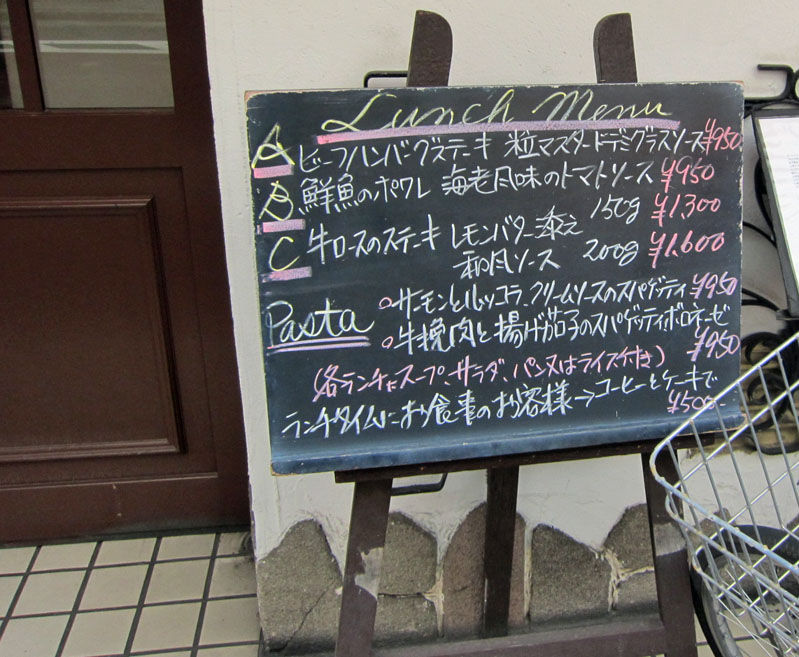 Lunch Menu
A ビーフハンバーグステーキ 粒マスタードデミグラスソース ¥950
B 鮮魚のポワレ 海老風味のトマトソース ¥950
150g ¥1,300
C 牛ロースのステーキ レモンバター添え
和風ソース 200g ¥1,600
Pasta ○サーモンとルッコラ、クリームソースのスパゲッティ ¥950
○牛挽肉と揚げ茄子のスパゲッティ、ボロネーゼ
¥950
(各ランチにスープ、サラダ、パン又はライス付き)
ランチタイムにお食事のお客様→コーヒーとケーキで
¥500-